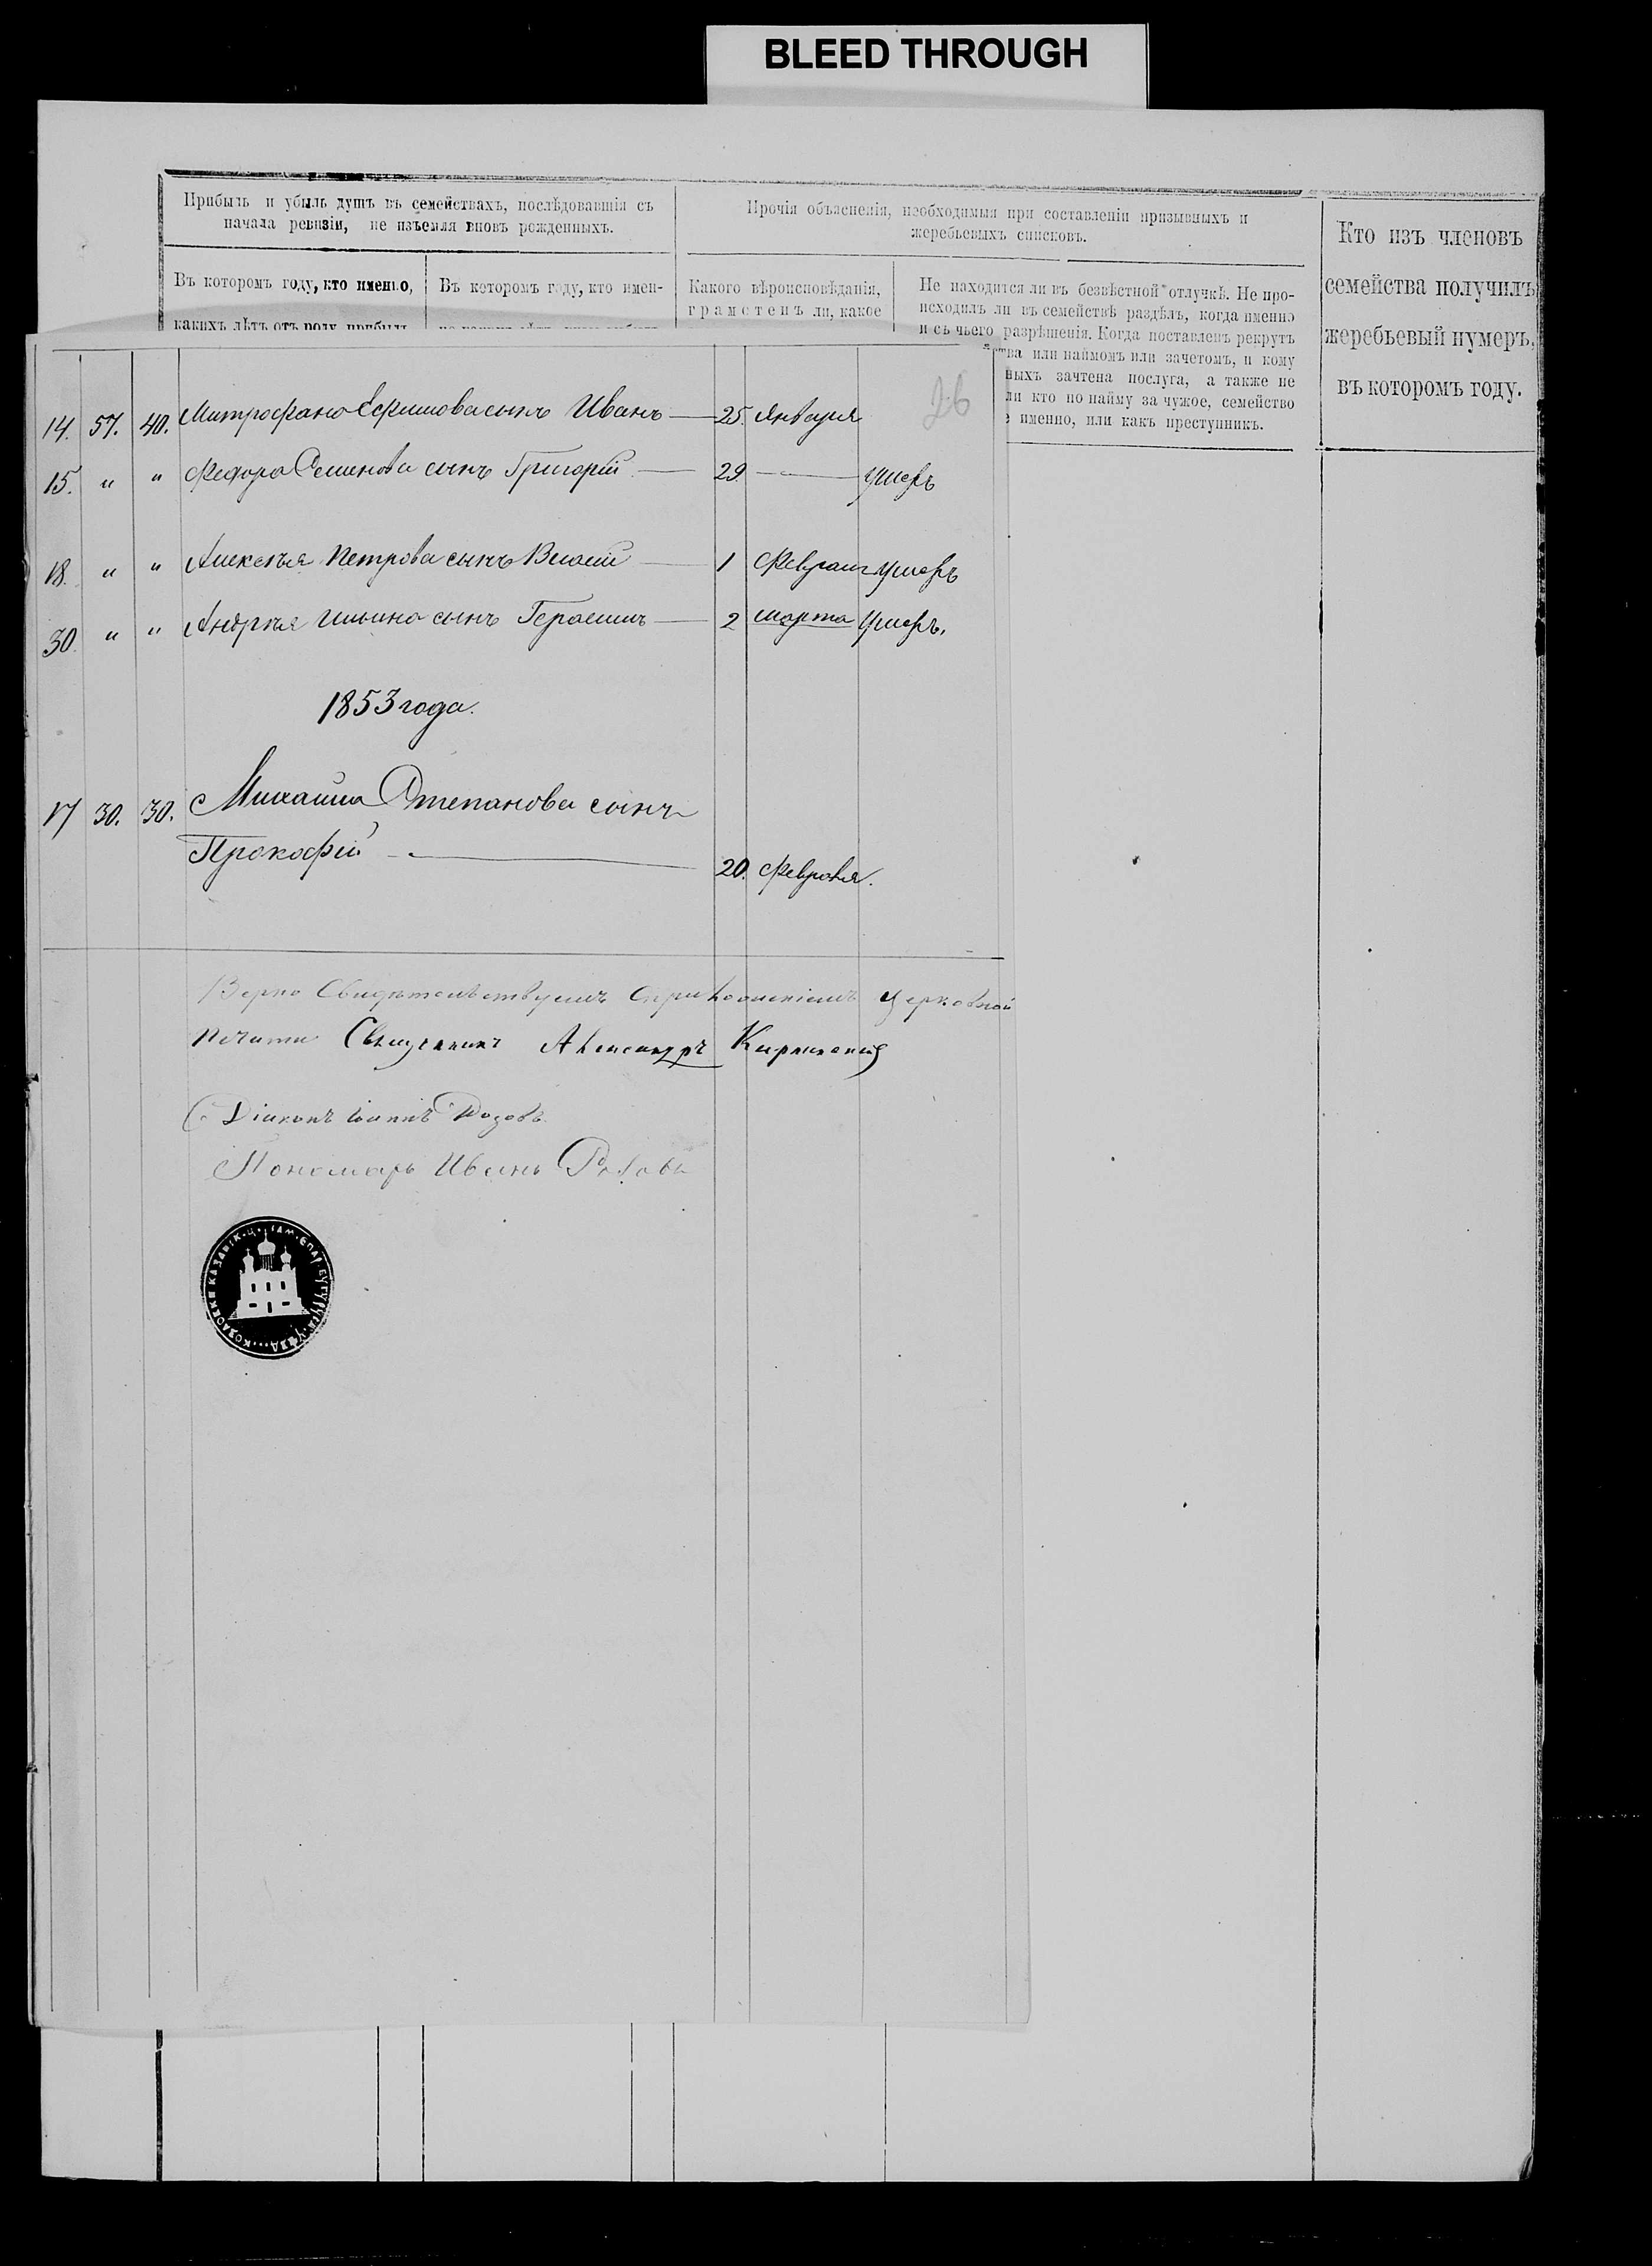 BLEED THROUGH
Прибыль и убыль душъ въ семействахъ, послѣдовавшія съ
начала ревизіи, не изъемля вновь рожденныхъ.
Въ которомъ году, кто именно,
какихъ лѣтъ отъ роду прибылъ
Въ которомъ году, кто имен-
Прочія объясненія, необходимыя при составленіи призывныхъ и
жеребьевыхъ списковъ.
Какого вѣроисповѣданія,
грамотенъ ли, какое
Не находится ли въ безвѣстной отлучкѣ. Не про-
исходилъ ли въ семействѣ раздѣлъ, когда именно
и съ чьего разрѣшенія. Когда поставленъ рекрутъ
ства или наймомъ или зачетомъ, и кому
ныхъ зачтена послуга, а также не
ли кто по найму за чужое, семейство
е именно, или какъ преступникъ.
Кто изъ членовъ
семейства получилъ
жеребьевый нумеръ,
въ которомъ году.
26
14. 57. 40. Митрофана Ефимова сынъ Иванъ — 25. Января
15. " " Федора Семенова сынъ Григорій — 29. — умеръ
18. " " Алексѣя Петрова сынъ Власій — 1 Февраля умеръ
30. " " Андрѣя Ильина сынъ Герасимъ — 2 марта умеръ.
1853 года.
17 30. 30. Михаила Степанова сынъ
Прокофій — 20. Февраля.
Верно Свидѣтельствуемъ съ приложеніемъ церковной
печати Священникъ Александръ
Діаконъ Іоаннъ Розовъ
Пономарь Иванъ